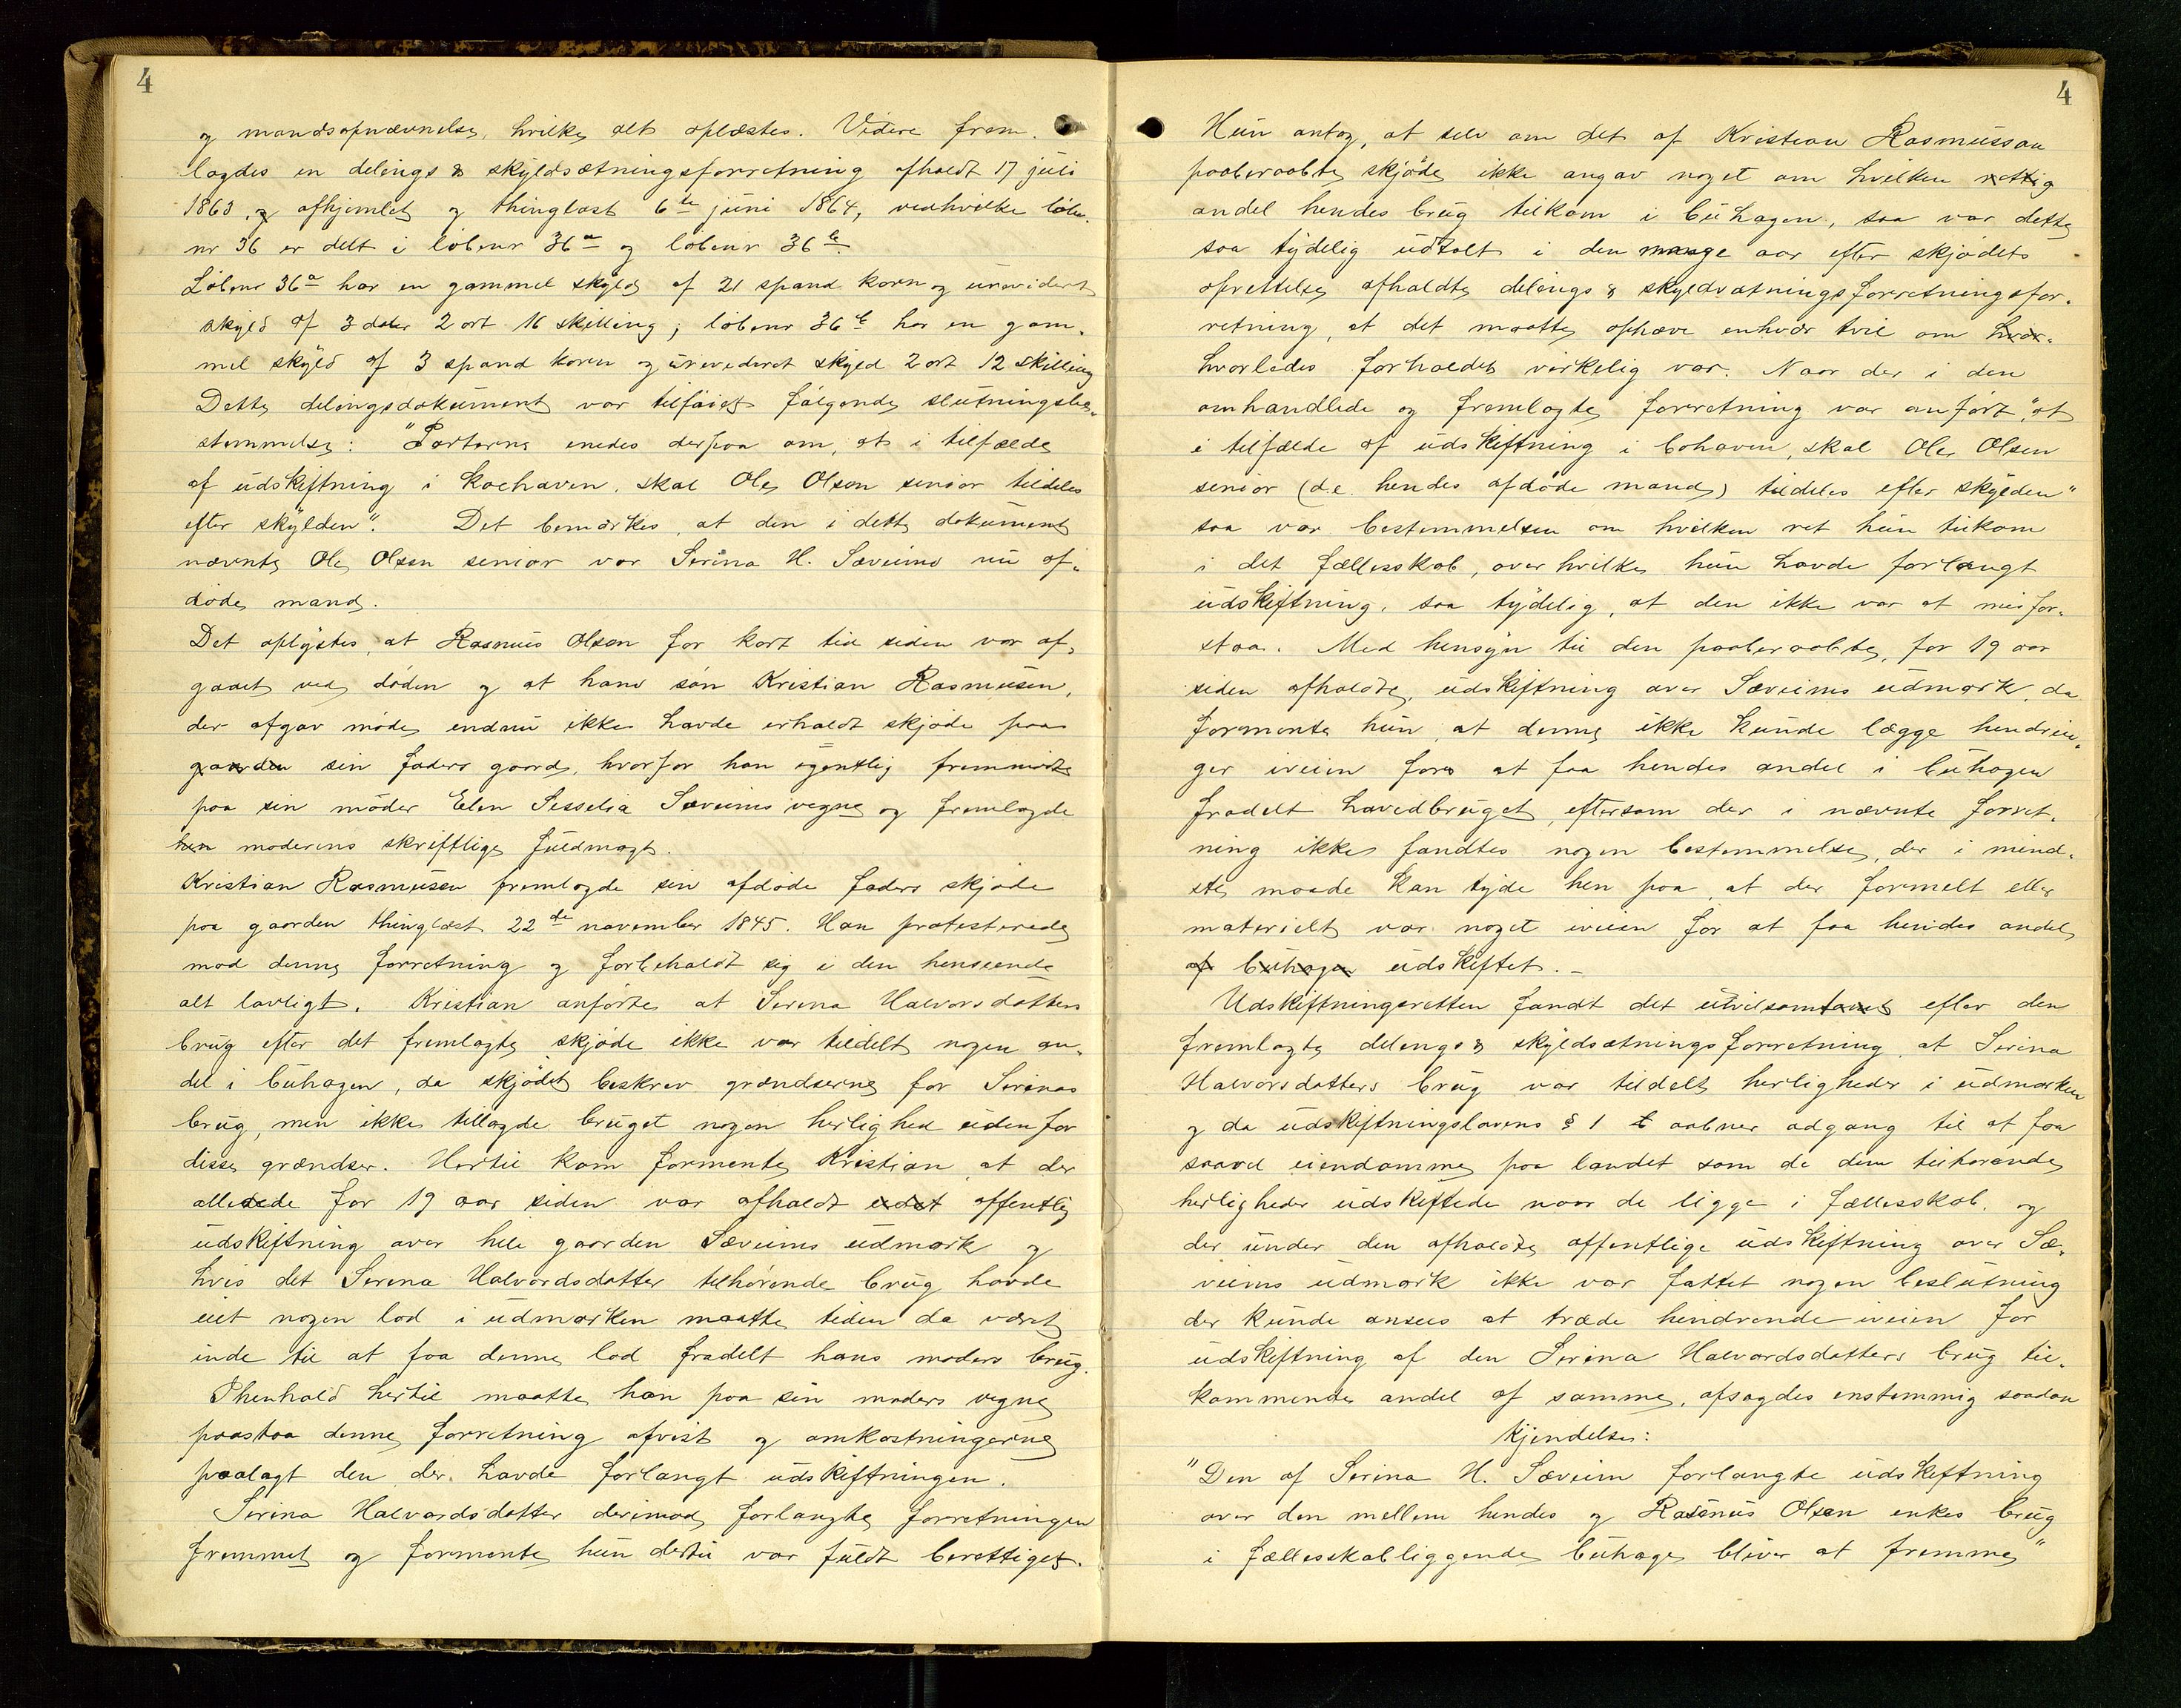 4
og mandsopnævnelse, hvilke alt oplæstes. Videre frem-
lagdes en delings & skyldsætningsforretning afholdt 17 juli
1863, og afhjemlet og thinglæst 6te juni 1864, vedhvilke løbe-
nr 36 er delt i løbenr 36a og løbenr 36b.
Løbenr 36a har en gammel skyld af 21 spand korn og urevideret
skyld af 3 daler 2 ort 16 skilling; løbenr 36b har en gam-
mel skyld af 3 spand korn og urevideret skyld 2 ort 12 skilling
Dette delingsdokument var tilføiet følgende slutningsbe-
stemmelse: "Parterne enedes derpaa om, at i tilfælde
af udskiftning i Koehaven, skal Ole Olsen senior tildeles
efter skylden". Det bemærkes, at den i dette dokument
nævnte Ole Olsen senior var Serina H. Sæveims nu af-
døde mand.
Det oplystes, at Rasmus Olsen for kort tid siden var af-
gaaet ved døden og at hans søn Kristian Rasmusen,
der afgav møde, endnu ikke havde erholdt skjøde paa
gaarden sin faders gaard, hvorfor han egentlig fremmødte
paa sin moder Elen Sesselia Sæveims vegne og fremlagde
hen moderens skriftlige fuldmagt.
Kristian Rasmusen fremlagde sin afdøde faders skjøde
paa gaarden thinglæst 22de november 1845. Han protesterede
mod denne forretning og forbeholdt sig i den henseende
alt lovligt. Kristian anførte at Serina Halvorsdatters
brug efter det fremlagte skjøde ikke var tildelt nogen an-
del i buhagen, da skjødet beskrev grændserne for Serinas
brug, men ikke tillagde bruget nogen herlighed udenfor
disse grændser. Hertil kom formente Kristian, at der
allerede for 19 aar siden var afholdt udst offentlig
udskiftning over hele gaarden Sæveims udmark og
hvis det Serina Halvordsdatter tilhørende brug havde
eiet nogen lod i udmarken maatte tiden da været
inde til at faa denne lod fradelt hans moders brug.
I henhold hertil maatte han paa sin moders vegne
paastaa denne forretning afvist og omkostningerne
paalagt den der havde forlangt udskiftningen.
Serina Halvordsdatter derimod forlangte forretningen
fremmet og formente hun dertil var fuldt berettiget.
4
Hun antog, at selv om det af Kristian Rasmussen
paaberaabte skjøde ikke angav noget om hvilken rettig
andel hendes brug tilkom i buhagen, saa var dette
saa tydelig udtalt i den mange aar efter skjødets
oprettelse afholdte delings & skyldsætningsforretningsfor-
retning, at det maatte ophæve enhver tvil om hvor-
hvorledes forholdet virkelig var. Naar der i den
omhandlede og fremlagte forretning var anført, "at
i tilfælde af udskiftning i bohaven, skal Ole Olsen
senior (d.e. hendes afdøde mand) tildeles efter skylden"
saa var bestemmelsen om hvilken ret hun tilkom
i det fællesskab, over hvilke hun havde forlangt
udskiftning, saa tydelig, at den ikke var at misfor-
staa. Med hensyn til den paaberaabte, for 19 aar
siden afholdte, udskiftning over Sæveims udmark, da
formente hun at denne ikke kunde lægge hendrin-
ger iveien for at faa hendes andel i buhagen
fradelt hovedbruget, eftersom der i nævnte forret-
ning ikke fandtes nogen bestemmelse, der i mind-
ste maade kan tyde hen paa, at der formelt eller
materielt var noget iveien for at faa hendes andel
af buhagen udskiftet. –
Udskiftningsretten fandt det utvilsomt efter den
fremlagte delings & skyldsætningsforretning, at Serina
Halvorsdatters brug var tildelt herligheder i udmarken
og da udskiftningslovens § 1 aabner adgang til at faa
saavel eiendomme paa landet som de dem tilhørende
herligheder udskiftede naar de ligge i fællesskab, og
der under den afholdte offentlige udskiftning over Sæ-
veims udmark ikke var fattet nogen beslutning
der kunde ansees at træde hindrende iveien for
udskiftning af den Serina Halvordsdatters brug til-
kommende andel af samme, afsagdes enstemmig saadan
Kjendelse:
"Den af Serina H. Sæveim forlangte udskiftning
over den mellem hendes og Rasmus Olsen enkes brug
i fællesskabliggende buhage bliver at fremme"